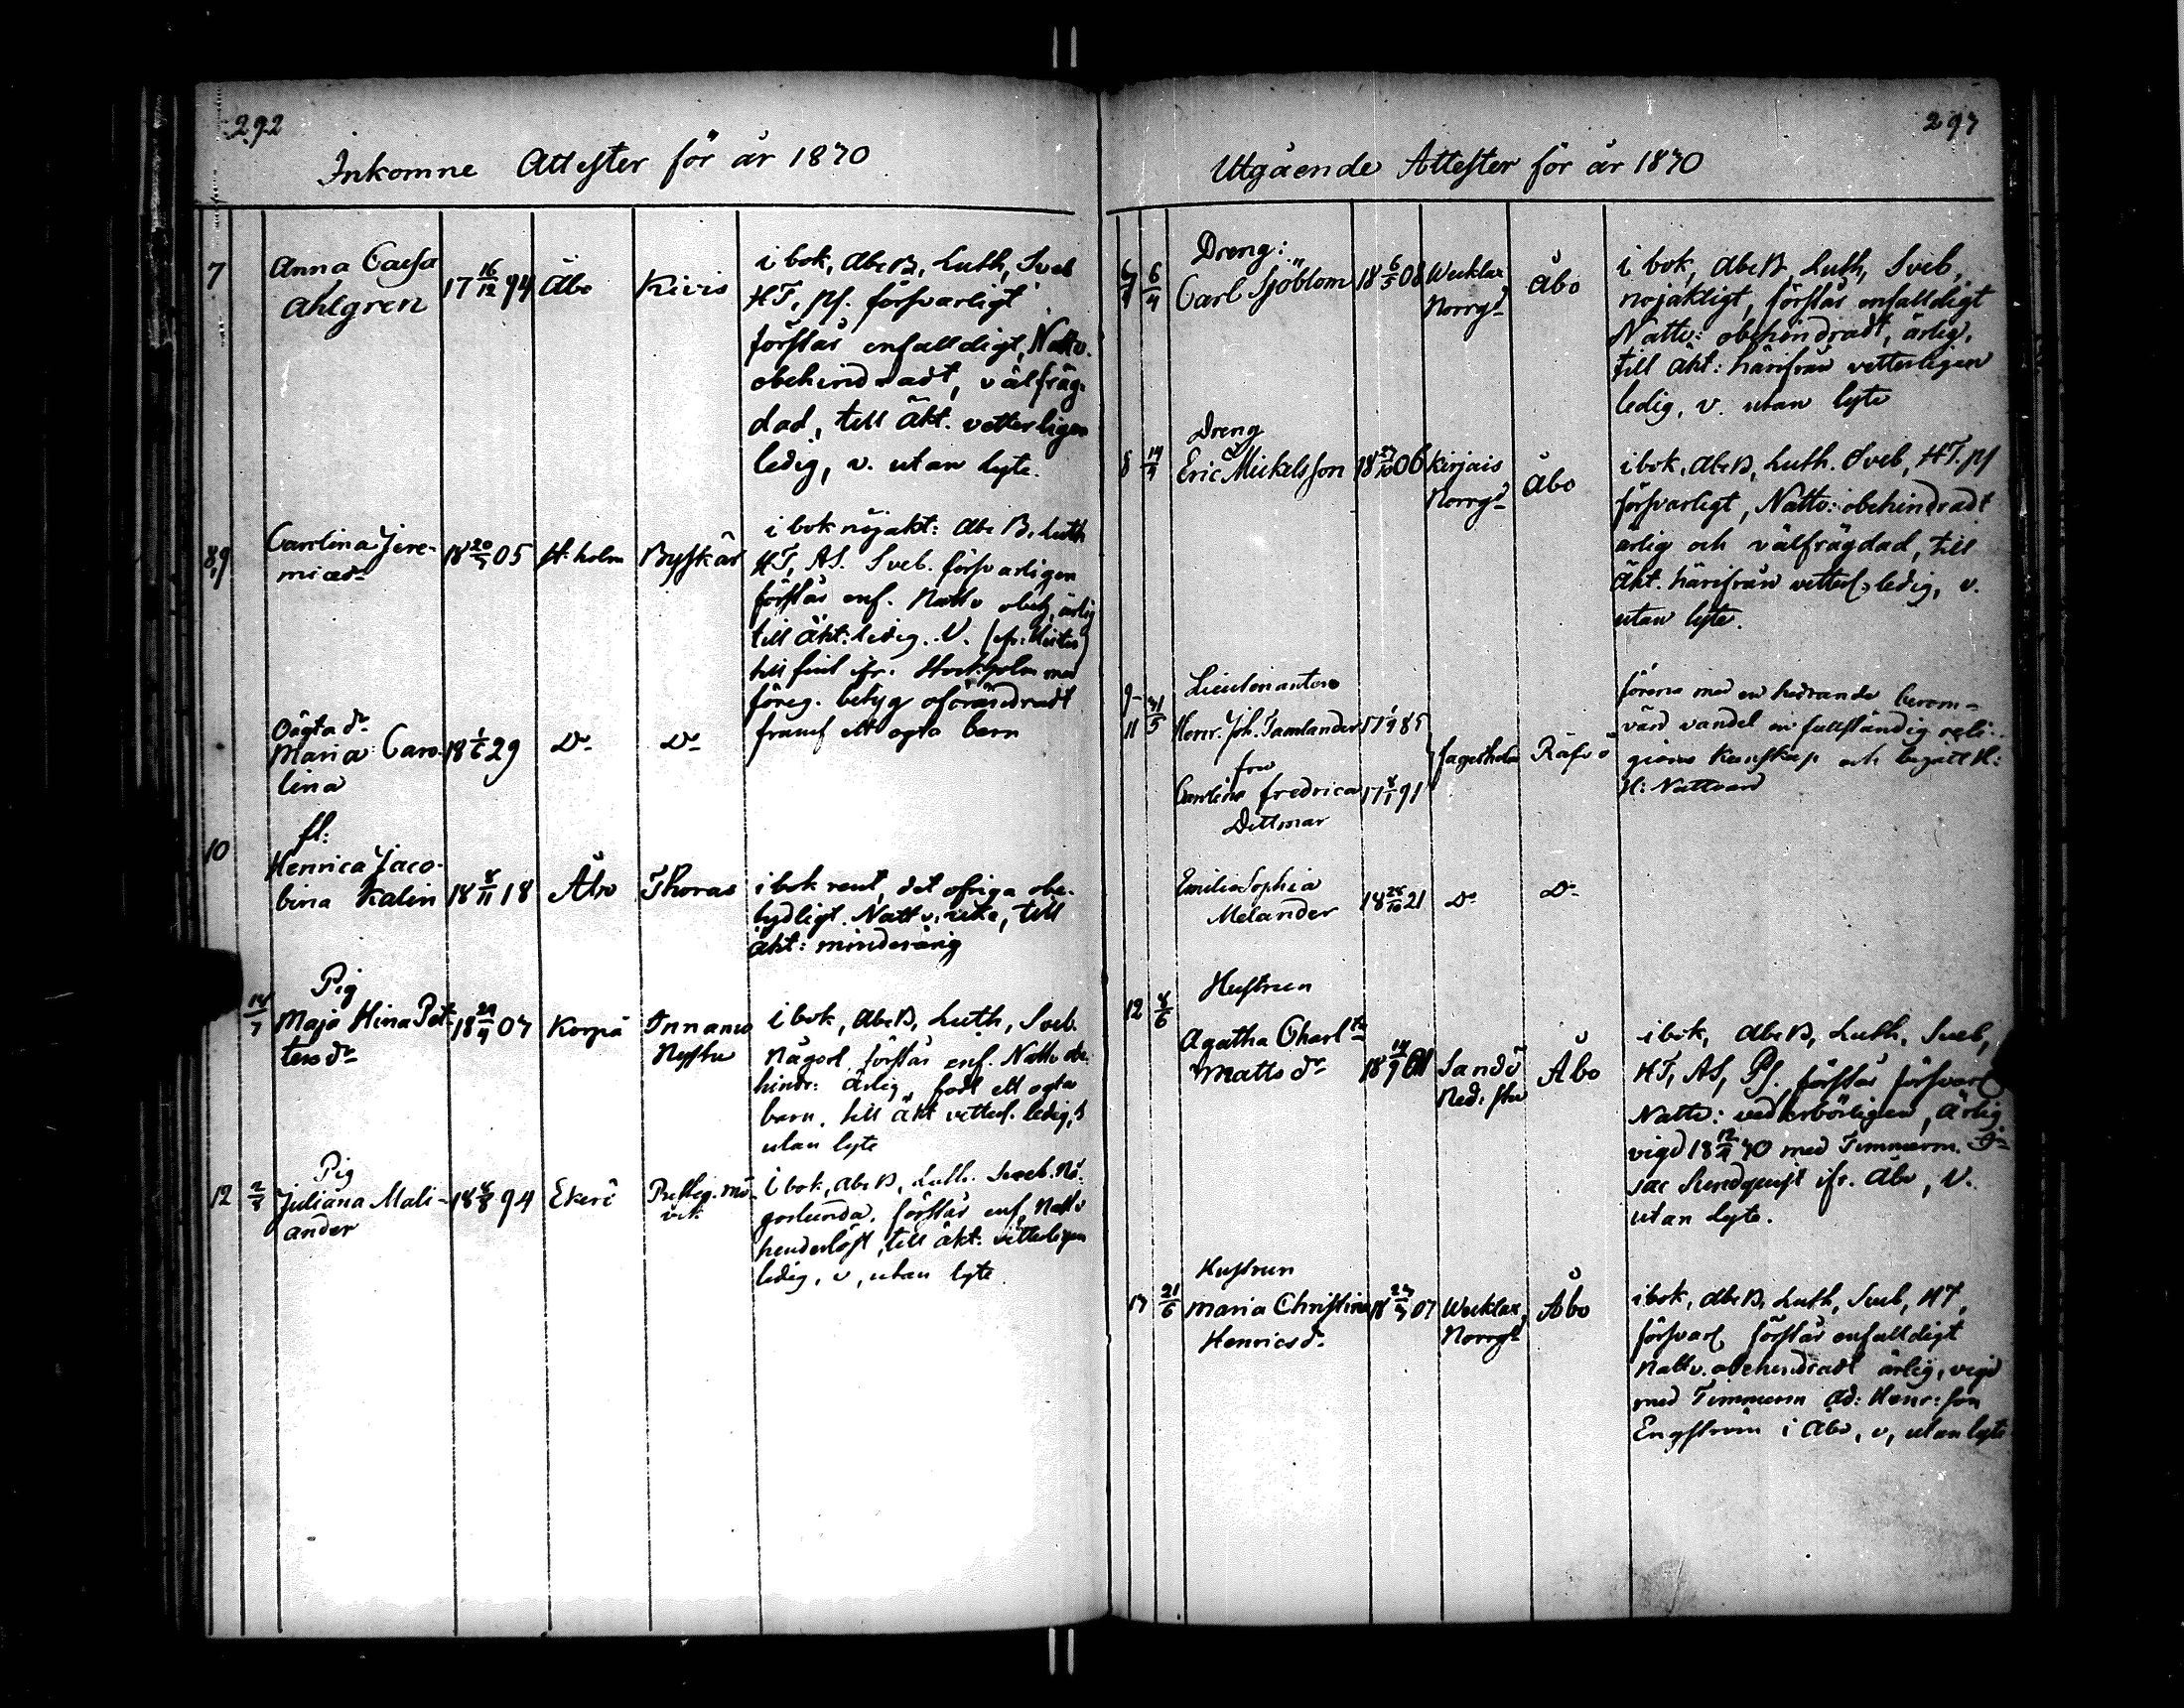 292
Inkomne Attester för år 1830
7
Anna Caisa
Ahlgren
17 16/12 94
Åbo
Kivis
i bok, Abc B, Luth, Sveb
HT, ps. försvarligt
förstår enfalldigt, Nattv.
obehindradt, välfräg-
dad, till Äkt. vetterligen
ledig, v. utan lyte.
8,9
Carolina Jere-
miaed
05
St. holm
Byskär
i bok nöjakt: Abc B, Luth
HT, AS. Sveb. försvarligen
förstår enf. Nattv obeh, ärlig
till äkt: ledig. V.
till finl ifr. Stockholm med
föreg. betyg oförändradt
framf ett ogta barn
Oägta dr
Maria Caro-
lina
29
Do
Do
10
fl:
Henrica Jaco-
bina Kalin
18 8/11 18
Åbo
Thoras
i bok rent, det öfriga obe-
tydligt. Nattv. icke, till
äkt: minderårig
Pig
Maja Stina Pet-
ters dr
07
Korpo
Innamo
Nystu
i bok, Abc B, Luth, Sveb.
någorl. förstår enf. Nattv obe-
hindr: Ärlig, födt ett ogta
barn, till äkt vetterl. ledig,
utan lyte
12
Pig
Juliana Mali-
ander
94
i bok, Abc B, Luth. Sveb. nå-
gorlunda. förstår enf, Nattv
hinderlöst, till äkt: vetterligen
ledig, v, utan lyte
293
Utgående Attester för år 1830
6/4
Dreng:
Carl Sjöblom
18 6/5 08
Wecklax
Norrgd
Åbo
i bok, Abc B, Luth, Sveb,
nöjaktigt, förstår enfalldigt
Nattv: obehindradt, ärlig,
till äkt: härifrån vetterligen
ledig, v. utan lyte
8
Dreng
Eric Mickelsson
06
Kirjais
Norrgd
Åbo
i bok, Abc B, Luth. Sveb, HT. ps
försvarligt, Nattv: obehindradt
ärlig och välfrägdad, till
äkt. härifrån vetterl. ledig, v.
utan lyte.
9-
11
31/5
Lieutenanten
Henr. Joh. Tamlander
85
fru
Carolina Fredrica
Dittmar
91
Räfsö
förena med en hedrande beröm-
värd vandel en fullständig reli-
gions kunskap och begått H:
H: Nattvard
Emilia Sophia
Melander
21
Do
Do
12
8/6
Hustrun
Agatha Charl:ta
Matts dr
Sandö
Ned: stu
Åbo
i bok, Abc B, Luth, Sveb,
HT, AS, Ps. förstår försvarl
Nattv: vederbörligen, ärlig
vigd 18 12/4 30 med Timmerm. I-
sac Lundquist ifr. Åbo, V.
utan Lyte.
13
21/6
Hustrun
Maria Christina
Henricsdr
07
Wecklax,
Norrgd
Åbo
i bok, Abc B, Luth, Sveb, HT,
försvarl förstår enfalldigt
Nattv. obehindradt ärlig, vigd
med Timmerm Ad: Henr: son
Engström i Åbo, v, utan lyte